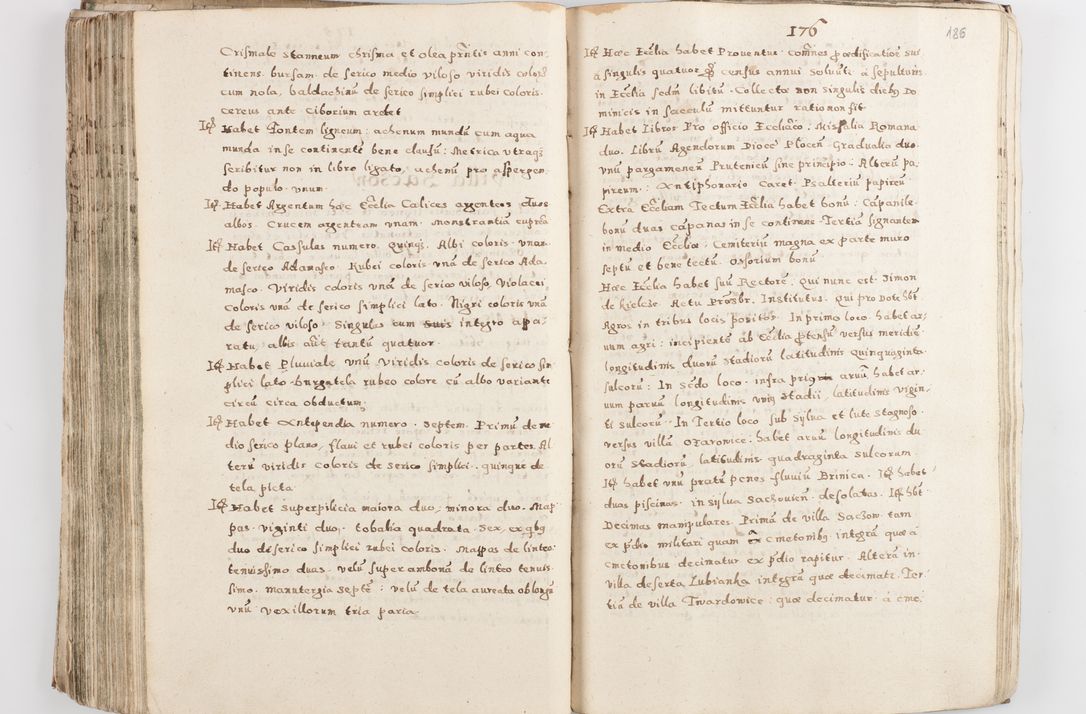 Crismale stanneum chrisma et olea pr̃ntis anni con
tinens. bursam de serico medio viloso viridis colors̃
cum nola, baldachinũ de serico simplici rubei coloris.
cereus ante Ciborium ardet
Itẽ Habet Fontem ligneum: achenum mundũ cum aqua
munda in se continentẽ bene clausũ: Metrica utraq̃
scribitur non in libro ligato, achenũ pro aspergen
do populo. unum.
Itẽ Habet Argentum hæc Eccl̃ia Calices argenteos duos
albos. Crucem argenteam unam. monstrantiã cupreã
Itẽ Habet Cassulas numero. quinq̃. Albi coloris. unam
de serico Adamasco. Rubei coloris. unã de serico Ada
masco. Viridis coloris unã de serico viloso, Violacei
coloris unã de serico simplici lato. Nigri coloris unã
de serico viloso. Singulas cum suis integro appa,
ratu, albis aũt tantũ quatuor.
Itẽ Habet Pluuiale unũ Viridis coloris de serico sim
plici lato. burgatela rubeo colore cũ albo variante
circũ circa obductum.
Itẽ Habet Antependia numero. septem. Primũ de me
dio serico plano, flaui et rubei coloris per partes. Al
terũ viridis coloris de serico simplici. quinque de
tela picta.
Itẽ Habet superpilicia maiora duo, minora duo. Map
pas. viginti duo. tobalia quadrata. sex. ex qb9
duo de serico simplici rubei coloris. mappas de linteo
tenuissimo duas. velũ super ambonã de linteo tenuis
simo. manutergia septẽ: velũ de tela aureata oblongũ
unũ vexillorum tria paria.
176
186
Itẽ Hæc Eccl̃ia habet Prouentus. com̃nes p̃ ædificatiõe sui
à singulis quatuor gr̃ census annui soluũt. à sepulturis
in Eccl̃ia sedm̃ libitũ. Collecta non singulis dieb9 Do
minicis in sacculũ mittuntur ratio non fit.
Itẽ Habet Libros Pro officio Eccl̃iaco: Missalia Romana
duo. Librũ Agendorum Dioec̃ Plocen̄. Gradualia duo.
unũ pargameneũ Prutenicũ sine principio: Alterũ pa,
pireum: Antiphonario caret. Psalteriũ papireũ.
Extra Eccl̃iam Tectum Eccl̃ia habet bonũ: Capanile
bonũ duas capanas in se continens. Tertiã signantem
in medio Eccl̃iæ. Cemiteriũ magna ex parte muro
septũ et bene tectũ. Ossorium bonũ
Hæc Eccl̃ia habet suũ Rectorẽ. Qui nunc est. Simon
de Kielcze. Actu Pr̃esbr. Institutus. Qui pro Dote hẽt
Agros in tribus locis positos. In primo loco habet ar,
uum agri: incipiente ab Eccl̃ia p̃tensũ versus meridiẽ
longitudinis duorũ stadiorũ latitudinis quinquaginta
sulcorũ: In sc̃do loco. infra priq̃ aruũ, habet ar,
uum paruũ longitudinis uni9 stadii, latitudinis vigin,
ti sulcorũ. In Tertio loco sub sylua et lute stagnoso.
versus villã Ozarowice. habet aruũ longitudinis du
orũ stadiorũ, latitudinis quadraginta sulcorum
Itẽ habet unũ pratũ penes fluuiũ Brinica. Itẽ habet
duas piscinas. in sylua Sachouien̄. desolatas. Itẽ hẽt
Decimas manipulares. Primã de villa Saczow. tam
ex p̃dio militari quam ex cmetonib9. integrã quæ à
cmetonibus decimatur ex p̃dio rapitur. Alterã in
villa deserta Lubianka integrũ quæ decimatr. Ter
tiã de villa Twardowice: quæ decimatur à cme,